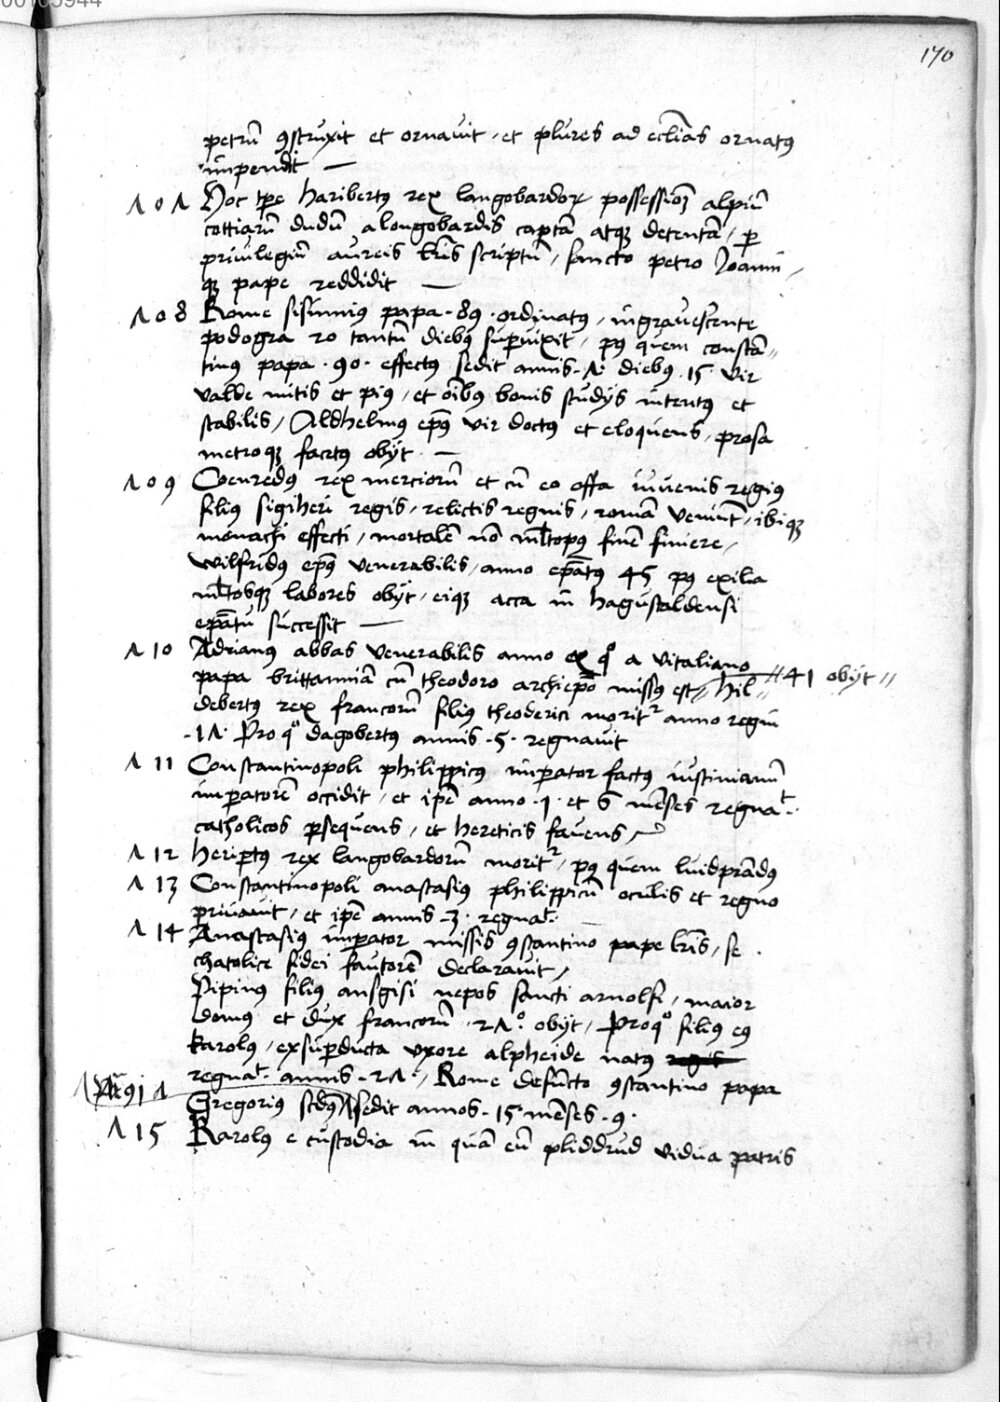 00103944
170
petrū 9struxit et ornauit / et plures ad eccl̄ias ornatꝰ
impendit —
707 Hoc tp̄e haribertꝰ rex langobardoꝝ possessioꝫ alpiū
cottiarū dudū a longobardis captā atqꝫ detentā / ꝑ
priuilegiū aureis lr̄is scriptū / sancto petro Joanni /
qꝫ pape reddidit —
708 Rome sisinnius papa · 89 · ordinatꝰ / ingrauescente
podogra 20 tantū diebꝰ suꝑuixit / pꝰ quem constā //
tinus papa · 90 · effectꝰ sedit annis · 7 · diebꝰ · 15 · vir
valde mitis et piꝰ / et oībꝰ bonis studijs intentꝰ et
stabilis / Aldhelmꝰ ep̄us vir doctꝰ et eloquens / prosa
metroqꝫ factꝰ obijt · —
709 Coenredꝰ rex merciorū et cū eo offa iuuenis regiꝰ
filiꝰ sigiheri regis / relictis regnis / romā veniūt / ibiqꝫ
monachi effecti / mortalē nō ml̄topꝰ finē finiere /
wilfridꝰ ep̄us venerabilis / anno ep̄atꝰ 45 pꝰ exilia
ml̄tosqꝫ labores obijt / eiqꝫ acca in hagustaldensi
ep̄atu successit —
710 Adrianꝰ abbas venerabilis anno ex qº a vitaliano
papa brittanniā cū theodoro archiepō missꝰ est // 41 obijt // hil //
debertꝰ rex francorū filiꝰ theoderici morit² anno regni
· 17 · Pro qº dagobertꝰ annis · 5 · regnauit
711 Constantinopoli philippicꝰ imꝑator factꝰ iustinianū
imꝑatorē occidit / et ip̄e anno · 1 · et 6 mēses regnaᵗ ·
catholicos ꝑsequens / et hereticis fauens
712 heriꝑtꝰ rex langobardorū morit² / pꝰ quem luidprādꝰ
713 Constantinopoli anastasiꝰ philippicū oculis et regno
priuauit / et ip̄e annis · 3 · regnaᵗ ·
714 Anastasiꝰ imꝑator missis 9stantino pape lr̄is / se
chatolice fidei fautorē declarauit /
Pipinꝰ filiꝰ ansgisi nepos sancti arnolfi / maior
domꝰ et dux francorū · 27º · obijt / Pro qº filiꝰ eꝰ
karolꝰ / ex suꝑducta vxore alpheide natꝰ
regnaᵗ annis · 27 · / Rome defūcto 9stantino papa
91
Gregoriꝰ scd̄ꝰ sedit annos · 15 · mēses · 9 ·
715 Karolꝰ e custodia in quā eū pliddrud vidua patris